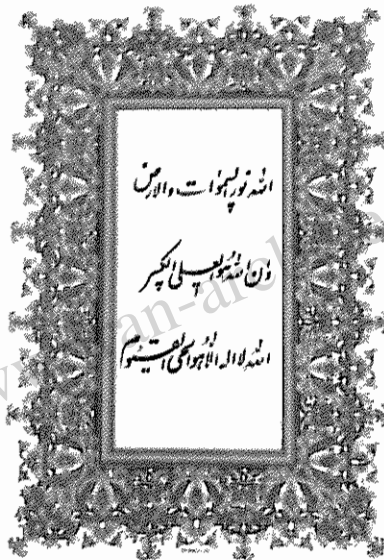 الله نور السموات والارض
وان الله هو العلی الکبیر
الله لا اله الا هو الحی القیوم